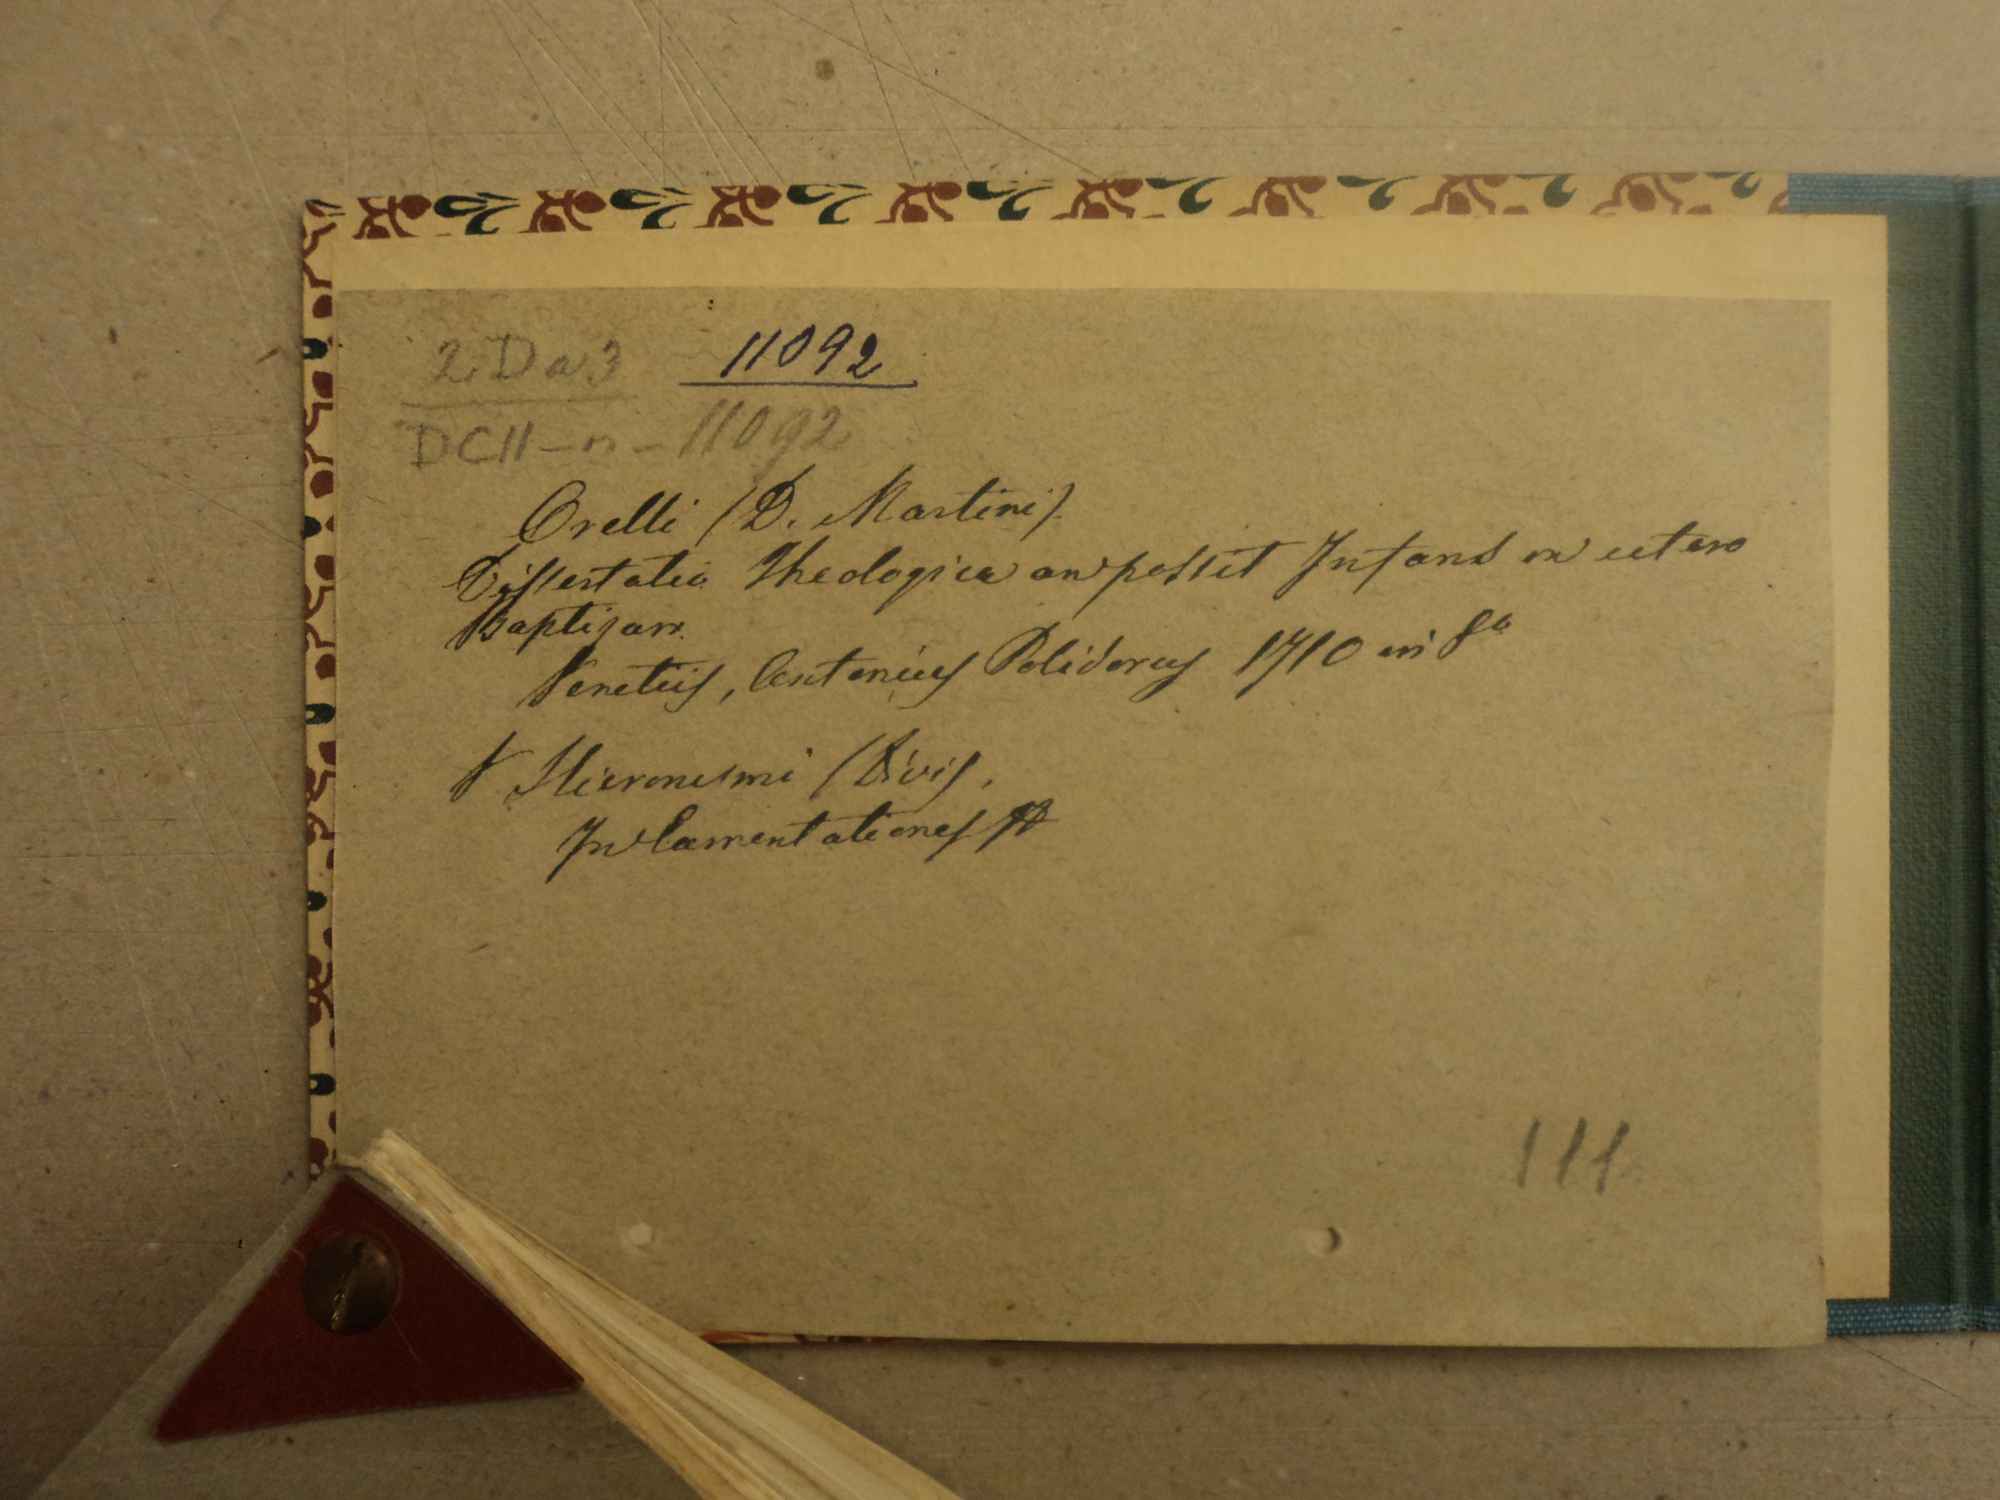 2 Da 3 11092
DC11 - n - 11092
Orelli (D. Martini).
Dissertatio Theologica an possit Infans in utero
Baptizari.
Venetiis, Antonius Polidorus 1710 in 8º
V Hieronimi (Divi).
In Lamentationes
111